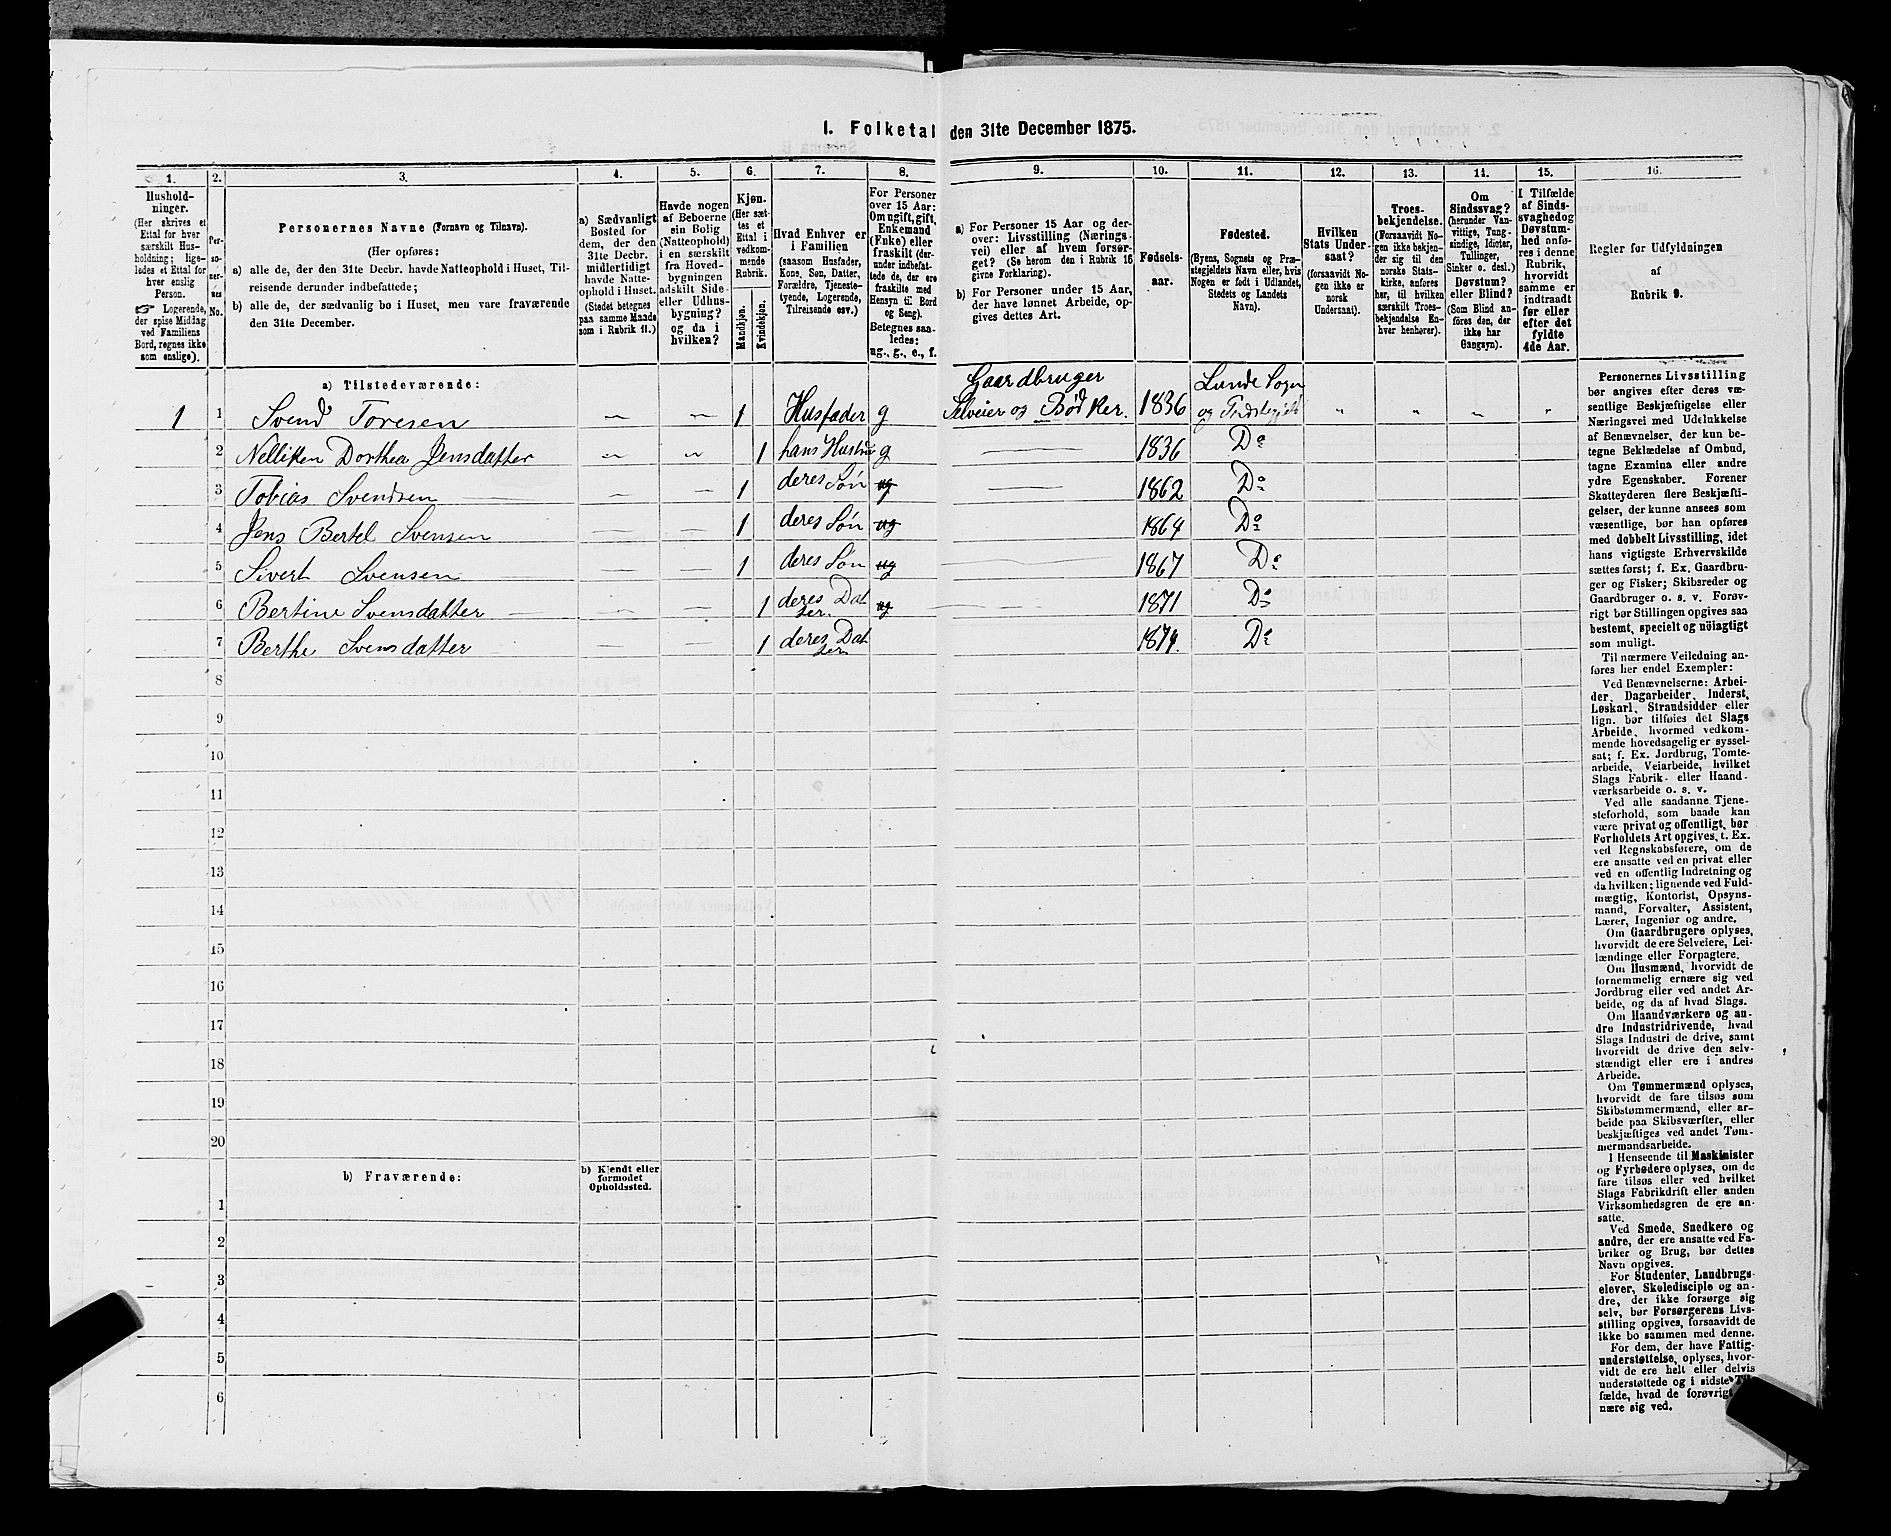 1. Folketal den 31te December 1875.
1. 2. 3. 4. 5. 6. 7. 8. 9. 10. 11. 12. 13. 14. 15. 16.
Hushold-
ninger.
(Her skrives et
Ettal for hver
særskilt Hus-
holdning; lige-
ledes et Ettal for
hver enslig
Person.
☞ Logerende,
der spise Middag
ved Familiens
Bord, regnes ikke
som enslige).
Per-
so-
ner-
nes
No.
Personernes Navne (Fornavn og Tilnavn).
(Her opføres:
a) alle de, der den 31te Decbr. havde Natteophold i Huset, Til-
reisende derunder indbefattede;
b) alle de, der sædvanlig bo i Huset, men vare fraværende
den 31te December.
a) Sædvanligt
Bosted for
dem, der den
31te Decbr.
midlertidigt
havde Natte-
ophold i Huset.
(Stedet betegnes
paa samme Maade
som i Rubrik 11.)
Havde nogen
af Beboerne
sin Bolig
(Natteophold)
i en særskilt
fra Hoved-
bygningen
adskilt Side-
eller Udhus-
bygning?
og da i
hvilken?
Kjøn.
(Her sæt-
tes et
Ettal i
vedkom-
mende
Rubrik.
Mandkjøn.
Kvindekjøn.
Hvad Enhver er
i Familien
(saasom Husfader,
Kone, Søn, Datter,
Forældre, Tjeneste-
tyende, Logerende,
Tilreisende osv.)
For Personer
over 15 Aar:
Om ugift, gift,
Enkemand
(Enke) eller
fraskilt (der-
under indbefat-
tede de, der ere
fraskilte med
Hensyn til Bord
og Seng).
Betegnes saa-
ledes:
ug., g., e., f.
a) For Personer 15 Aar og der-
over: Livsstilling (Nærings-
vei) eller af hvem forsør-
get? (Se herom den i Rubrik 16
givne Forklaring).
b) For Personer under 15 Aar,
der have lønnet Arbeide, op-
gives dettes Art.
Fødsels-
aar.
Fødested.
(Byens, Sognets og Præ-
stegjeldets Navn eller, hvis
Nogen er født i Udlandet,
Stedets og Landets
Navn).
Hvilken
Stats Under-
saat?
(forsaavidt No-
gen ikke er
norsk
Undersaat).
Troes-
bekjendelse.
(Forsaavidt No-
gen ikke bekjen-
der sig til den
norske Stats-
kirke, anføres
her, til hvilken
særskilt Troes-
bekjendelse En-
hver henhører).
Om
Sindssvag?
(herunder Van-
vittige, Tung-
sindige, Idioter,
Tullinger,
Sinker o. desl.)
Døvstum?
eller Blind?
(Som Blind an-
føres den, der
ikke har
Gangsyn).
I Tilfælde
af Sinds-
svaghed og
Døvstum-
hed anfø-
res i denne
Rubrik,
hvorvidt
samme er
indtraadt
før eller
efter det
fyldte
4de Aar.
Regler for Udfyldningen
af
Rubrik 9.
a) Tilstedeværende:
1 1 Svend Toresen 1 Husfader g Gaardbruger Selveier og Bødker. 1836 Lunde Sogn og Præstegjeld " " " "
2 Nelliken Dorthea Jensdatter 1 hans Hustru g 1836 Do
3 Tobias Svendsen 1 deres Søn ug 1862 Do
4 Jens Bertel Svensen 1 deres Søn ug 1864 Do
5 Sivert Svensen 1 deres Søn ug 1867 Do
6 Bertine Svensdatter 1 deres Datter ug 1871 Do
7 Berthe Svensdatter 1 deres Datter 1874. Do
8
9
10
11
12
13
14
15
16
17
18
19
20
b) Fraværende:
b) Kjendt eller
formodet
Opholdssted.
1
2
3
4
5
6
Personernes Livsstilling
bør angives efter deres væ-
sentlige Beskjæftigelse eller
Næringsvei med Udelukkelse
af Benævnelser, der kun be-
tegne Beklædelse af Ombud,
tagne Examina eller andre
ydre Egenskaber. Forener
Skatteyderen flere Beskjæfti-
gelser, der kunne ansees som
væsentlige, bør han opføres
med dobbelt Livsstilling, idet
hans vigtigste Erhvervskilde
sættes først; f. Ex. Gaardbru-
ger og Fisker; Skibsreder og
Gaardbruger o. s. v. Forøv-
rigt bør Stillingen opgives saa
bestemt, specielt og nöiagtigt
som muligt.
Til nærmere Veiledning an-
føres her endel Exempler:
Ved Benævnelserne: Arbei-
der, Dagarbeider, Inderst,
Løskarl, Strandsidder eller
lign. bør tilføies det Slags
Arbeide, hvormed vedkom-
mende hovedsagelig er syssel-
sat; f. Ex. Jordbrug, Tomte-
arbeide, Veiarbeide, hvilket
Slags Fabrik- eller Haand-
værksarbeide o. s. v.
Ved alle saadanne Tjene-
steforhold, som baade kan
være privat og offentligt, bør
Forholdets Art opgives, t. Ex.
ved Regnskabsførere, om de
ere ansatte ved en privat eller
ved en offentlig Indretning og
da hvilken; lignende ved Fuld-
mægtig, Kontorist, Opsyns-
mand, Forvalter, Assistent,
Lærer, Ingeniør og andre.
Om Gaardbrugere oplyses,
hvorvidt de ere Selveiere, Lei-
lændinge eller Forpagtere.
Om Husmænd, hvorvidt de
fornemmelig ernære sig ved
Jordbrug eller ved andet Ar-
beide, og da af hvad Slags.
Om Haandværkere og an-
dre Industridrivende, hvad
Slags Industri de drive, samt
hvorvidt de drive den selv-
stændigt eller ere i andres
Arbeide.
Om Tømmermænd oplyses,
hvorvidt de fare tilsøs som
Skibstømmermænd, eller ar-
beide paa Skibsværfter, eller
beskjæftiges ved andet Tøm-
mermandsarbeide.
I Henseende til Maskinister
og Fyrbødere oplyses, om de
fare tilsøs eller ved hvilket
Slags Fabrikdrift eller anden
Virksomhedsgren de ere an-
satte.
Ved Smede, Snedkere og
andre, der ere ansatte ved Fa-
briker og Brug, bør dettes
Navn opgives.
For Studenter, Landbrugs-
elever, Skoledisciple og an-
dre, der ikke forsørge sig
selv, bør Forsørgerens Livs-
stilling opgives, forsaavidt de
ikke bo sammen med denne.
For dem, der have Fattig-
understøttelse, oplyses, hvor-
vidt de ere helt eller delvis
understøttede og i sidste Til-
fælde, hvad de forøvrigt
nære sig ved.